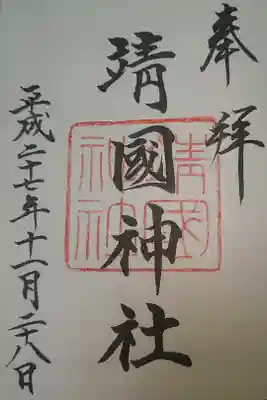 奉拝
靖國神社
平成二十七年十一月二十八日
靖國神社